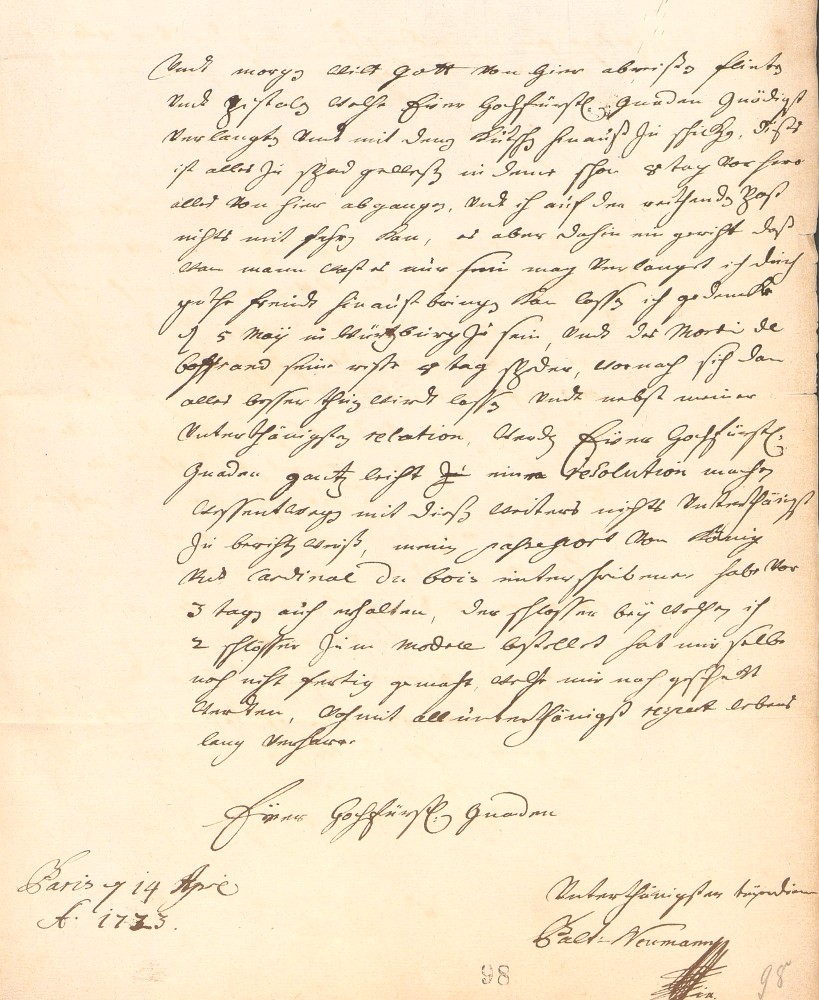 Undt morgen wilt gott von hier abreisen flinten
undt pistolen welche Euer Hochfürstl: Gnaden gnädigst
verlangten undt mit dem Kutsche hinauß zu schicken, dieses
ist alles zu spad gewessen in deme schon 8 tag vorhero
alles von hier abgangen, undt ich auf der reithenden Post
nichts mit führen kan, es aber dahin eingericht daß
wan mann was es nur sein mag verlanget ich durch
guthe freindt hinauß bringen kan lassen, ich gedencke
d 5 Maÿ in Würtzburg zu sein, undt des Monsi: de
boffrand seine reise 8 tag speder, wornach sich dan
alles besser thun wirdt lassen undt nebst meiner
unterthänigsten relation, werden Euer Hochfürstl:
Gnaden gantz leicht zu eine resolution machen
wessentwegen mit dieß weiters nichts unterthänigst
zu berichten weiß, mein passeport von König
undt Cardinal du bois unterschribener habe vor
3 tagen auch erhalten, der schlosser beÿ welchen ich
2 schlösser zum modele bestellet hat mir selbe
noch nicht fertig gemacht, welche mir nach geschickt
werden, wohmit all unterthänigst respect lebens
lang verharre
Euer Hochfürstl: Gnaden
Paris d 14 April
A: 1723.
Unterthänigster
Balt: Neumann
98
98